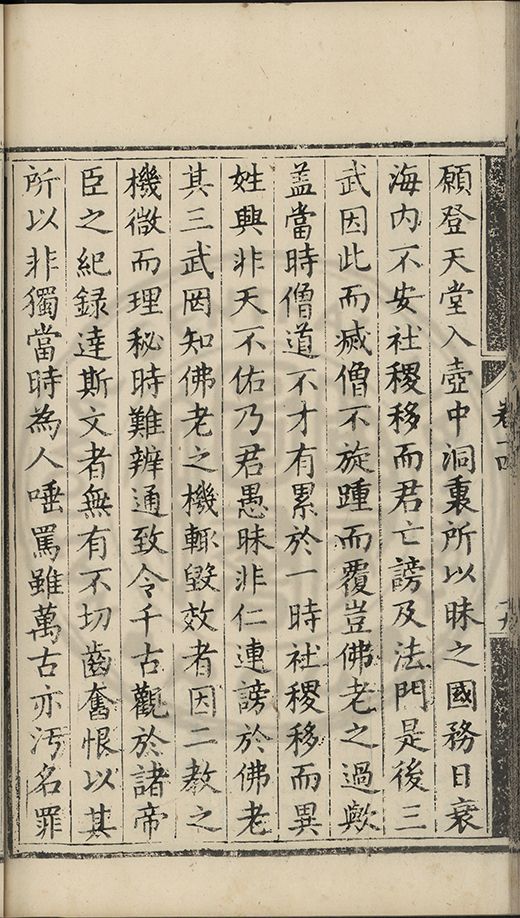 願登天堂入壺中洞裏所以昧之國務日衰
海内不安社稷移而君亡謗及法門是後三
武因此而滅僧不旋踵而覆豈佛老之過歟
盖當時僧道不才有累於一時社稷移而異
姓興非天不佑乃君愚昧非仁連謗於佛老
其三武罔知佛老之機輙毀效者因二教之
機微而理秘時難辨通致令千古觀於諸帝
臣之紀録達斯文者無有不切齒奮恨以其
所以非獨當時為人唾罵雖萬古亦汚名罪